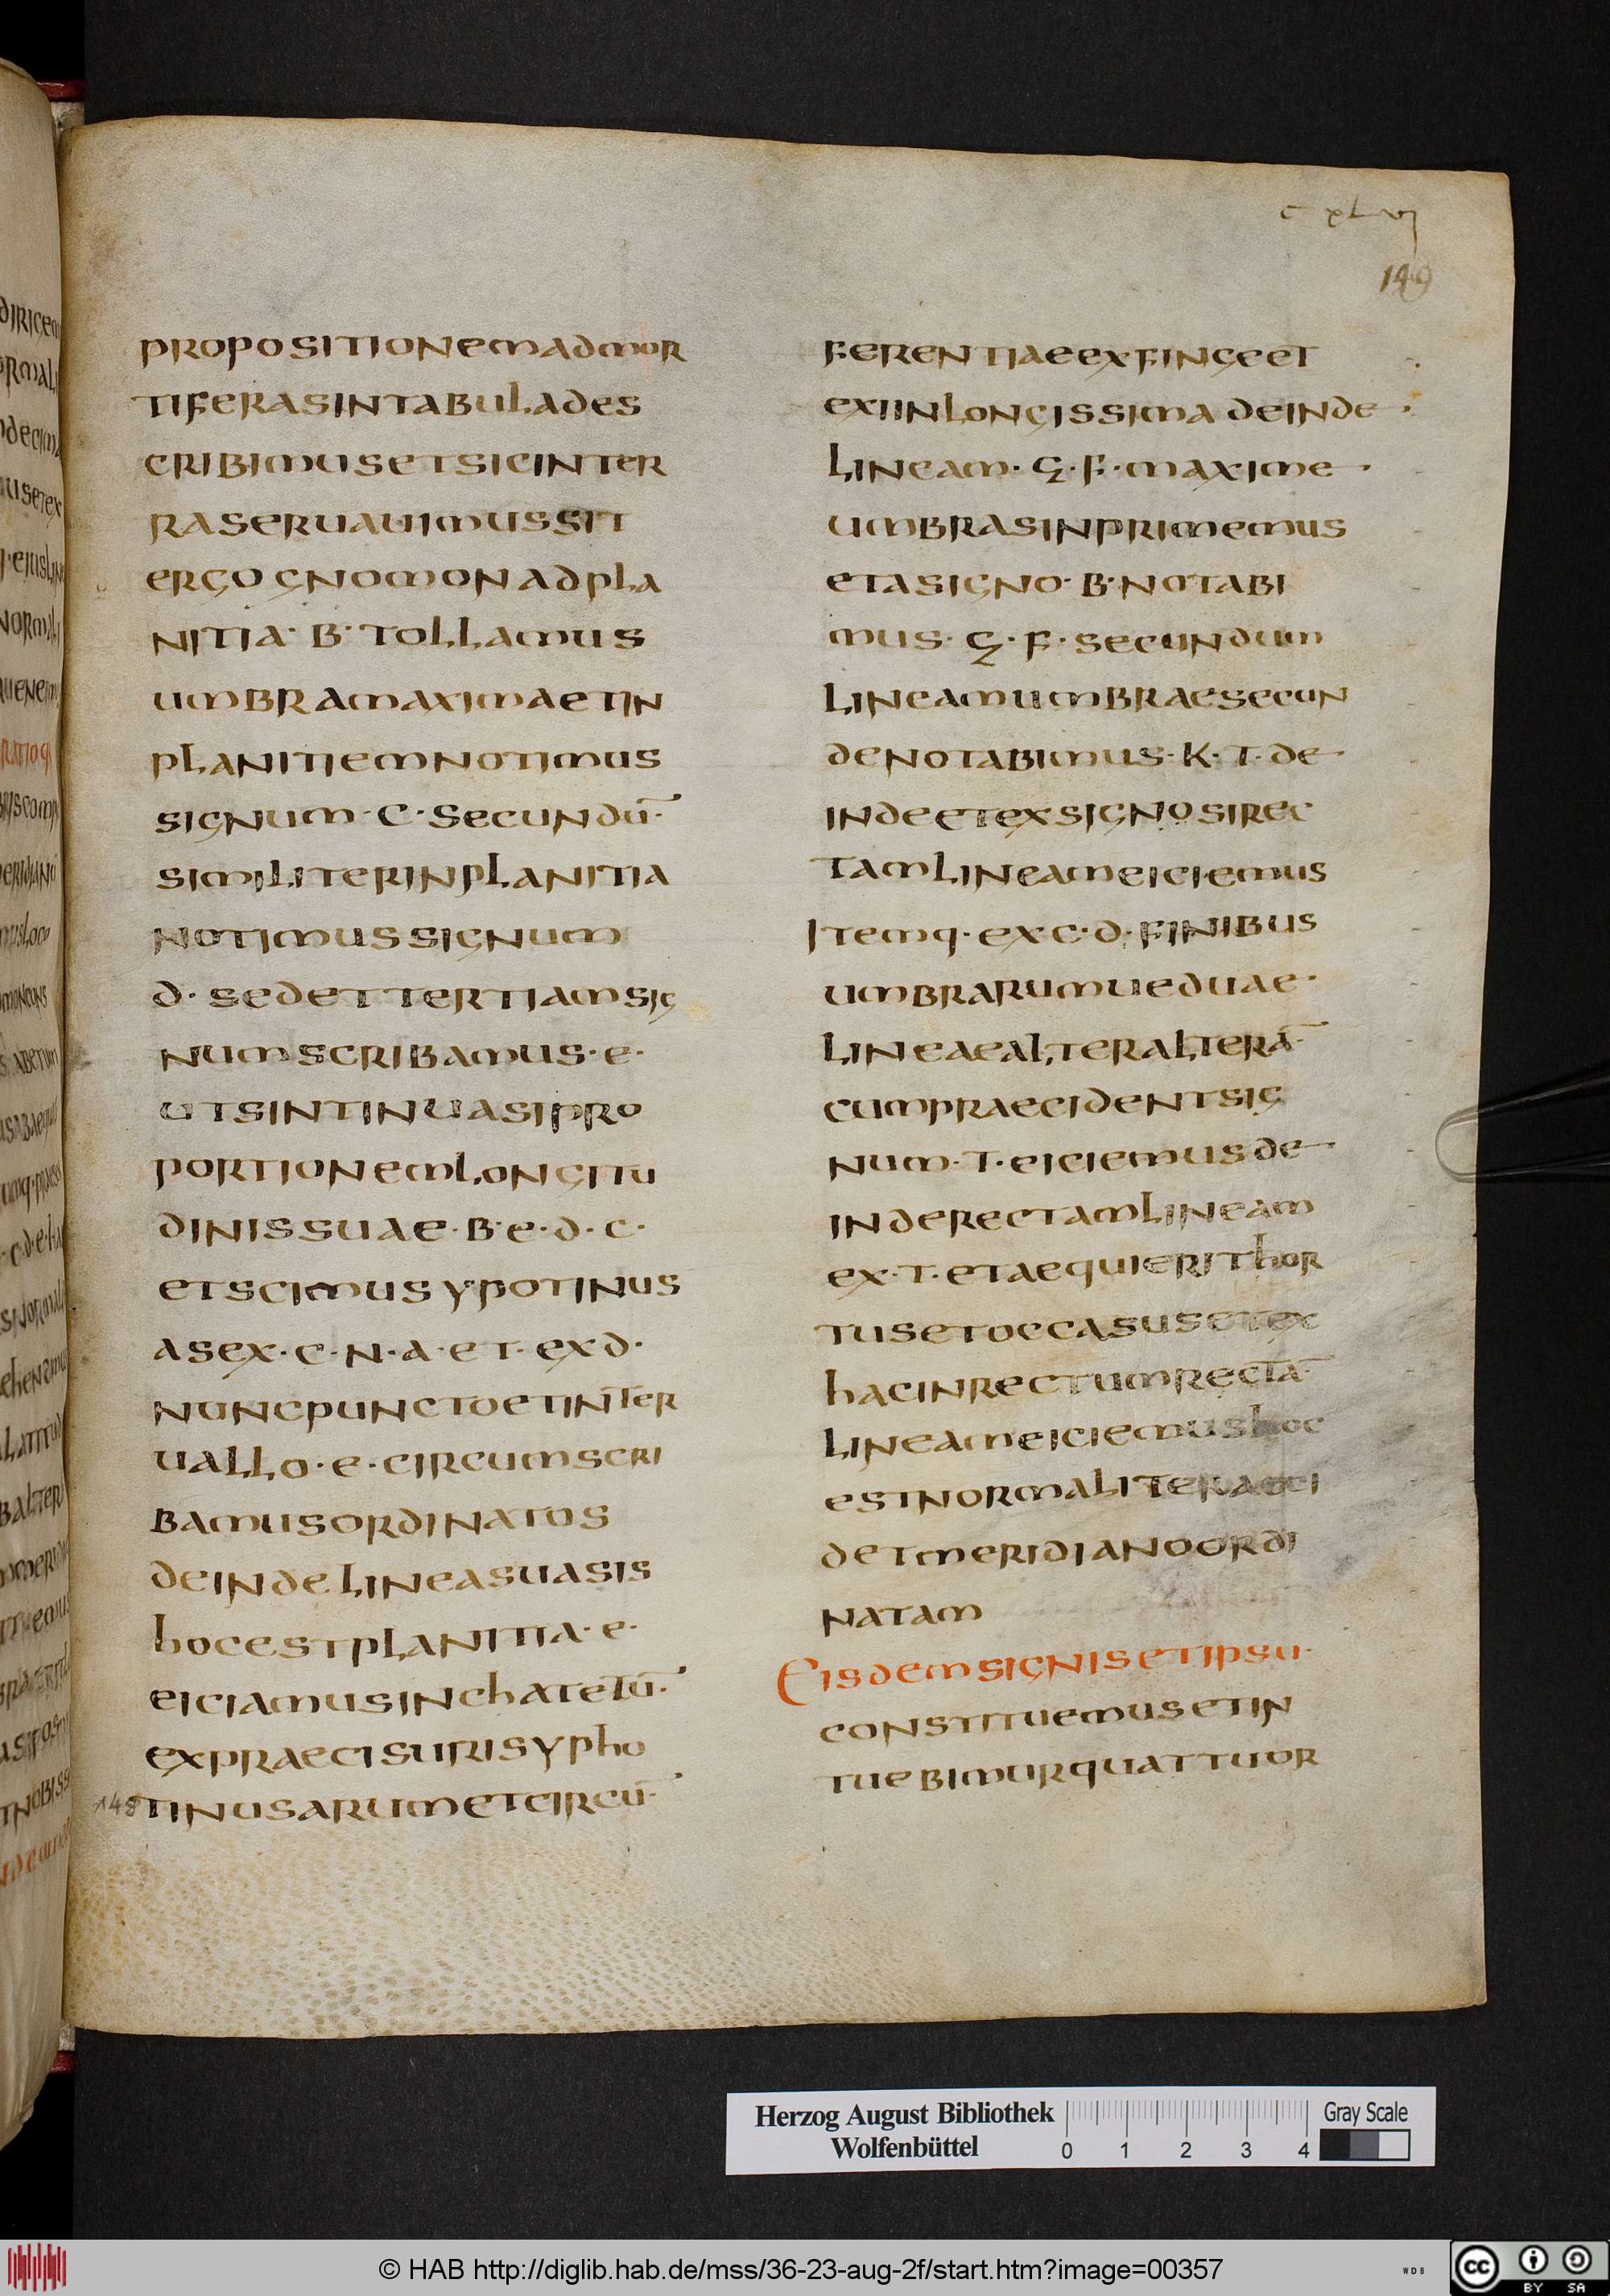 c xlvi
149
PROPOSITIONEMADMOR
TIFERASINTABULADES
CRIBIMUSETSICINTER
RASERUAUIMUSSIT
ERGOGNOMONADPLA
NITIA· B· TOLLAMUS
UMBRAMAXIMAETIN
PLANITIEMNOTIMUS
SIGNUM·C·SECUNDŪ·
SIMILITERINPLANITIA
NOTIMUSSIGNUM
D· SEDETTERTIAMSIG
NUMSCRIBAMUS·E·
UTSINTINUASIPRO
PORTIONEMLONGITU
DINISSUAE·B·E·D·C·
ETSCIMUSYPOTINUS
ASEX·C·N·A·ET·EXD·
NUNCPUNCTOETINTER
UALLO·E·CIRCUMSCRI
BAMUSORDINATOS
DEINDELINEASUASIS
HOCESTPLANITIA·E·
EICIAMUSINCHATETŪ·
EXPRAECISURISYPHO
TINUSARUMETCIRCŪ·
FERENTIAEEXFINGEET
EXIINLONGISSIMADEINDE
LINEAM·G·F·MAXIME
UMBRASINPRIMEMUS
ETASIGNO·B·NOTABI
MUS·G·F·SECUNDUM
LINEAMUMBRAESECUN
DENOTABIMUS·K·T·DE
INDEETEXSIGNOSIREC
TAMLINEAMEICIEMUS
ITEMQ·EXC·D·FINIBUS
UMBRARUMUEDUAE·
LINEAEALTERALTERĀ·
CUMPRAECIDENTSIG
NUM·T·EICIEMUSDE
INDERECTAMLINEAM
EX·T·ETAEQUIERITHOR
TUSETOCCASUSETEX
HACINRECTUMRECTĀ·
LINEAMEICIEMUSHOC
ESTNORMALITERACCI
DETMERIDIANOORDI
NATAM
EISDEMSIGNISETIPSU·
CONSTITUEMUSETIN
TUEBIMURQUATTUOR
Herzog August Bibliothek
Wolfenbüttel
0 1 2 3 4
Gray Scale
© HAB http://diglib.hab.de/mss/36-23-aug-2f/start.htm?image=00357
WDB
cc
BY SA